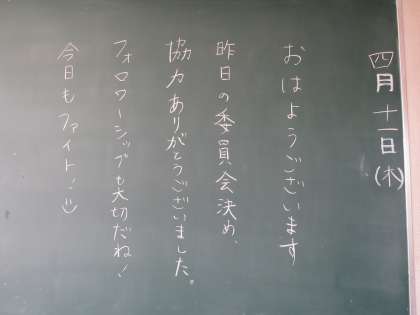 四月十一日(木)
おはようございます
昨日の委員会決め、
協力ありがとうございました。
フォロワーシップも大切だね！
今日もファイト！:)